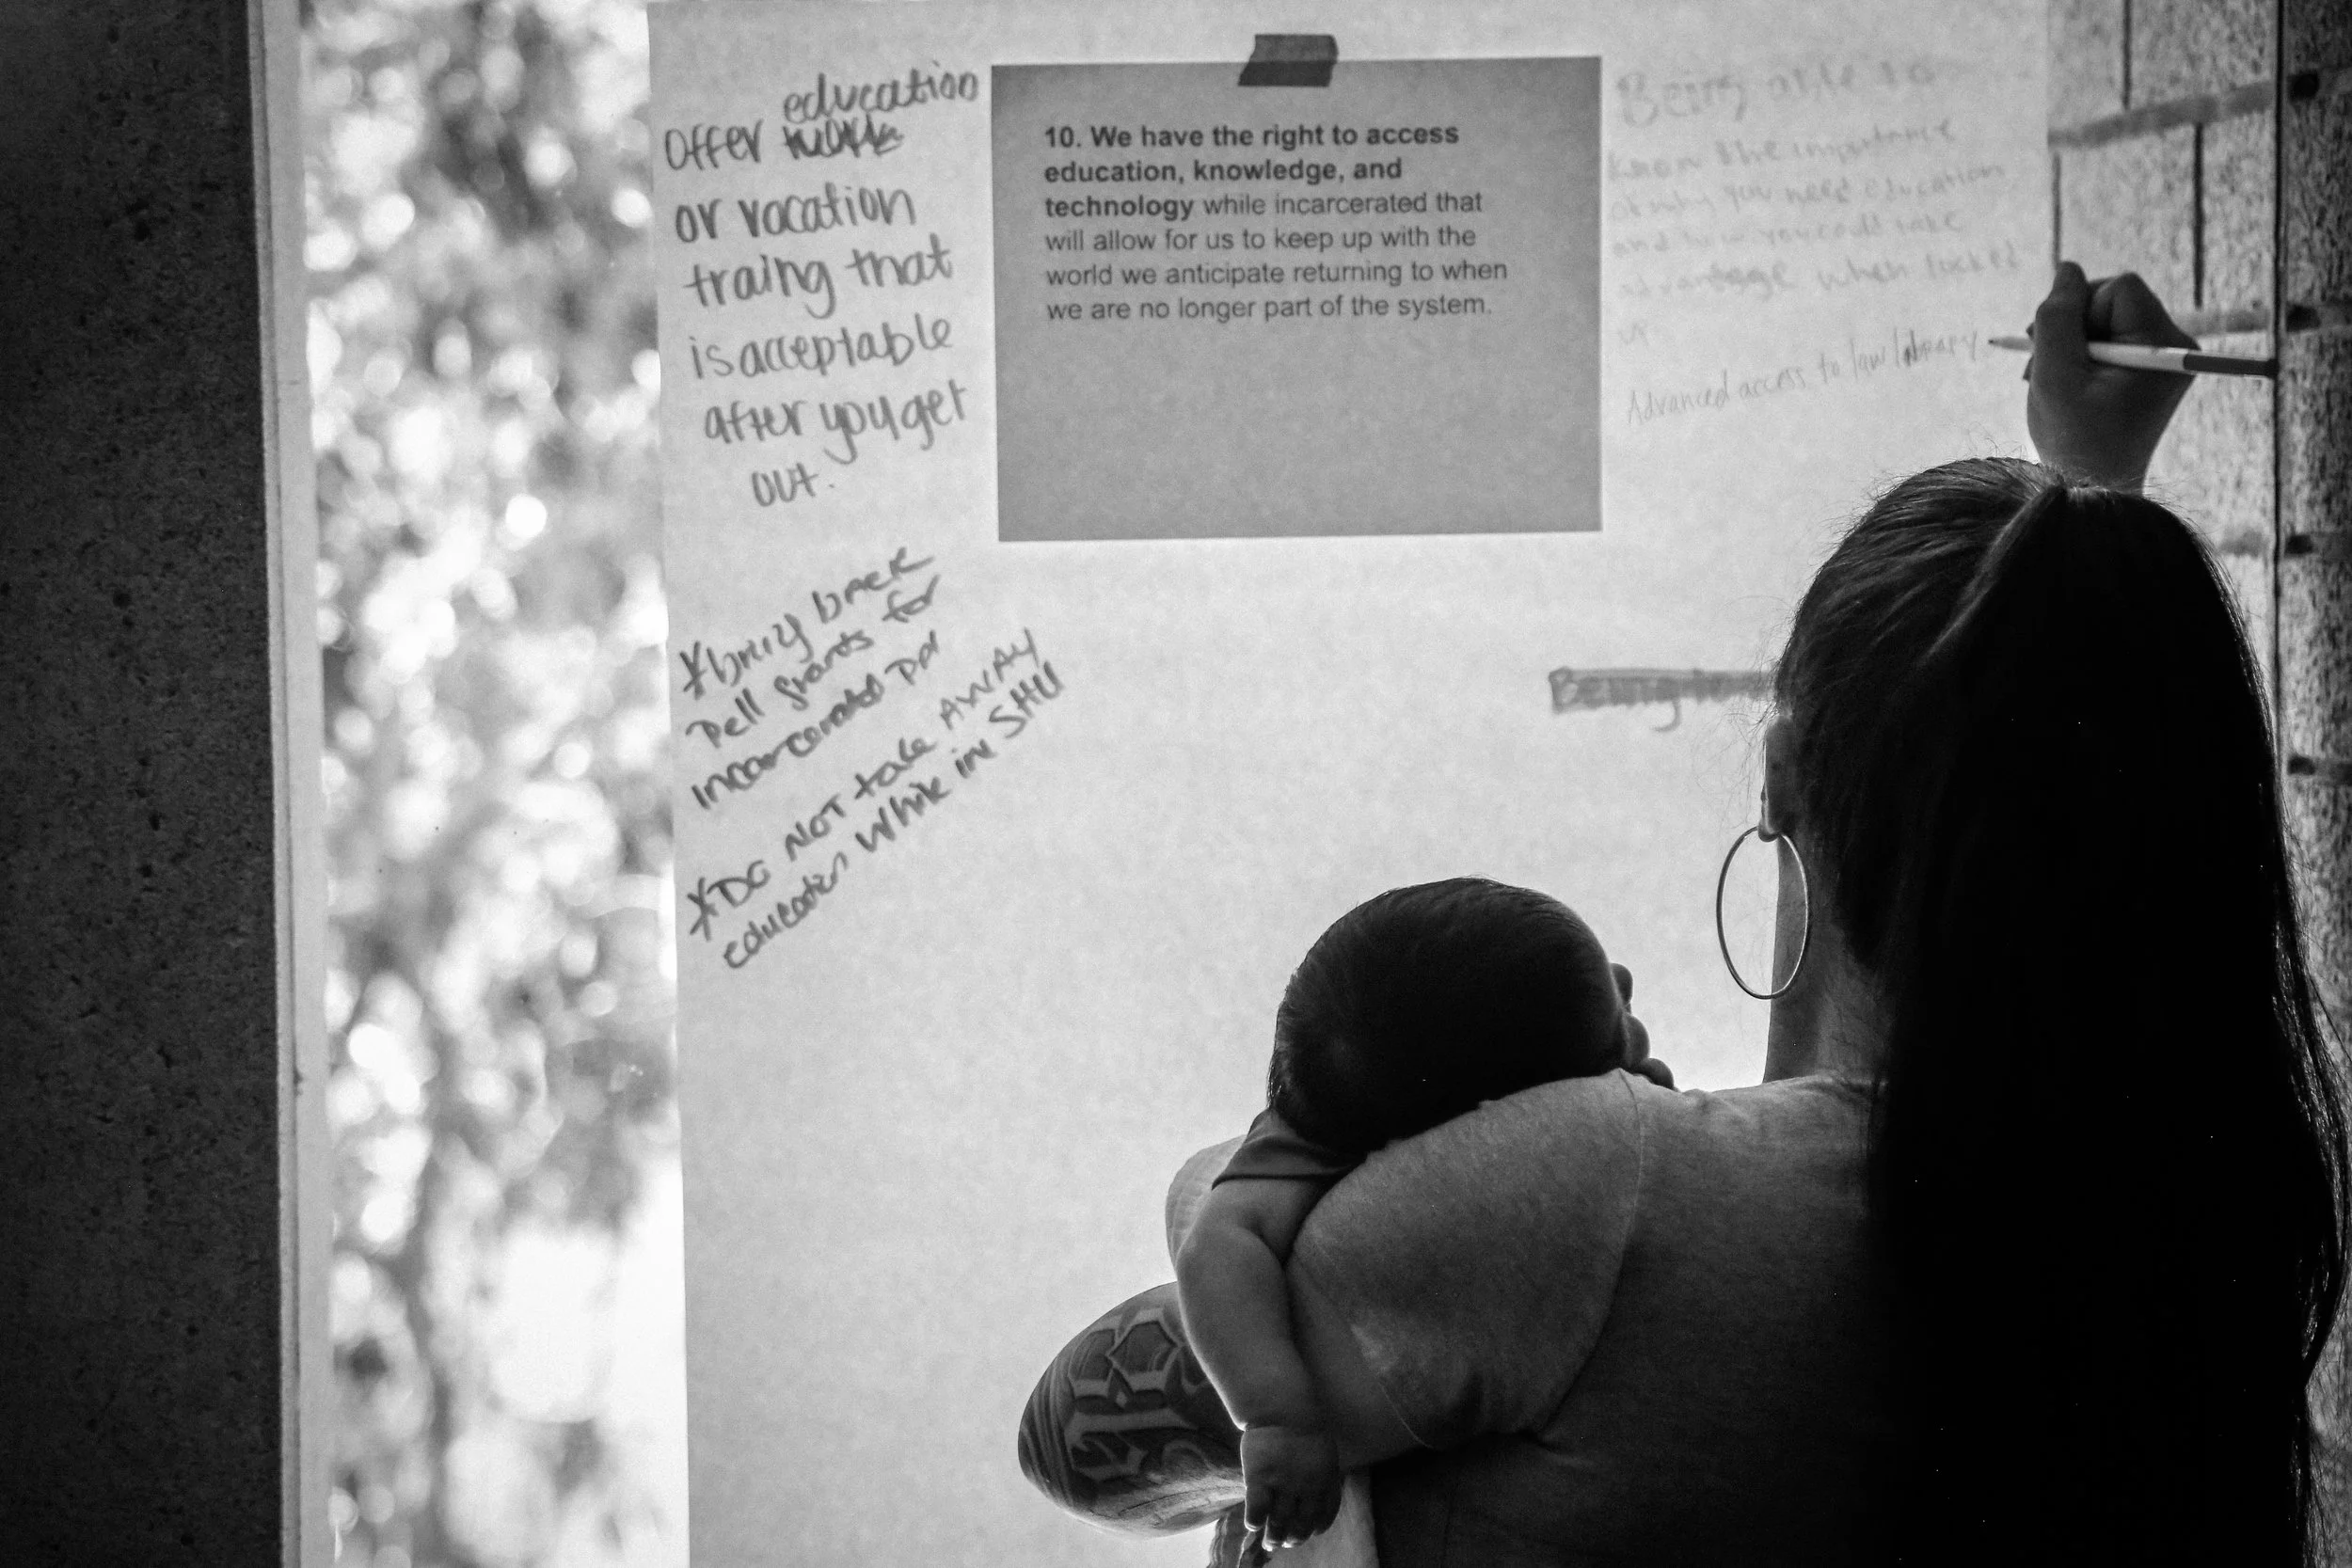 education
Offer work
or vocation
traing that
is acceptable
after you get
out.
*bring back
Pell grants for
incarcerated ppl
*DO NOT take AWAY
education while in SHU
10. We have the right to access
education, knowledge, and
technology while incarcerated that
will allow for us to keep up with the
world we anticipate returning to when
we are no longer part of the system.
Being able to
know the importance
of why you need education
and how you could take
advantage when locked
up
Advanced access to law library
Being